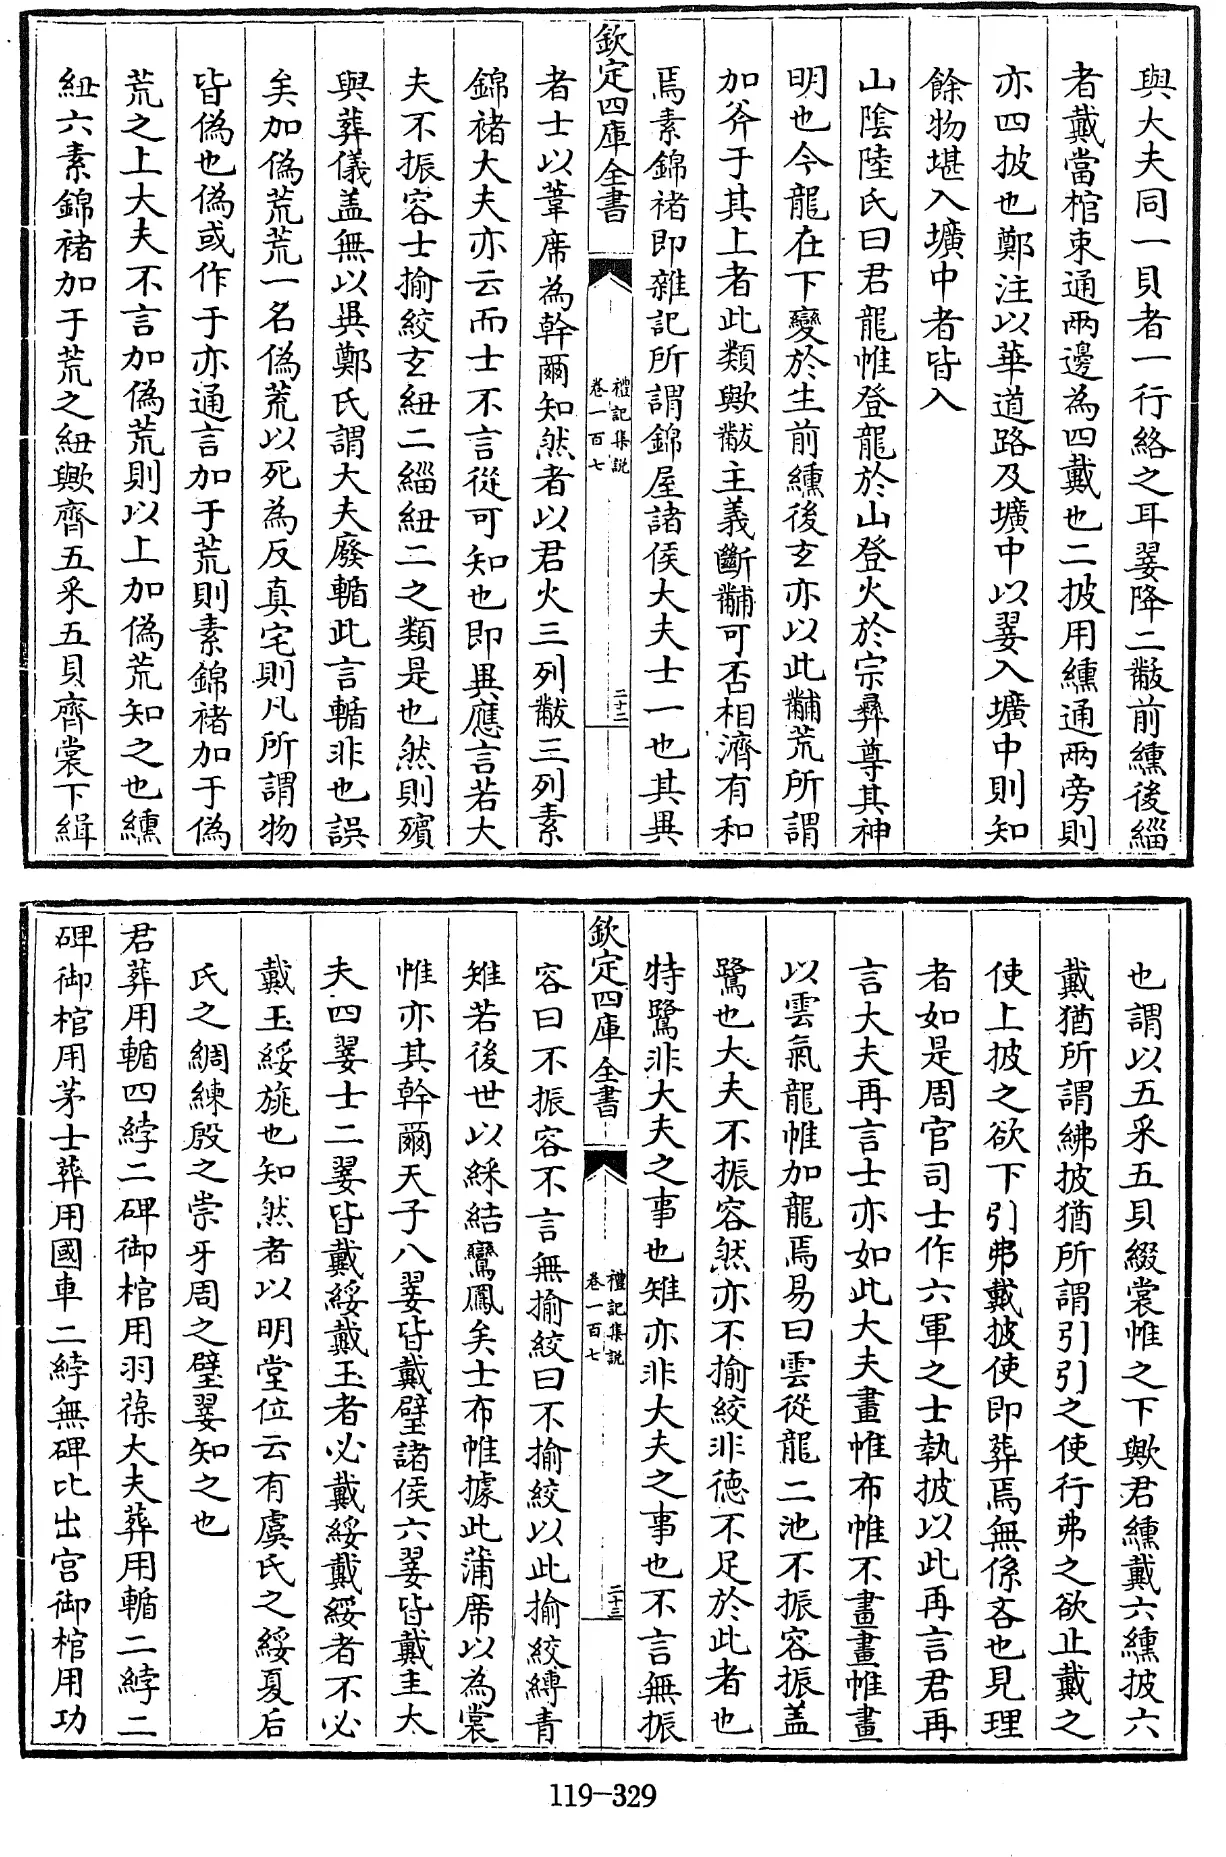 與大夫同一貝者一行絡之耳翣降二黻前纁後緇
者戴當棺束通兩邊為四戴也二披用纁通兩旁則
亦四披也鄭注以華道路及壙中以翣入壙中則知
餘物堪入壙中者皆入
山陰陸氏曰君龍帷登龍於山登火於宗彞尊其神
明也今龍在下變於生前纁後玄亦以此黼荒所謂
加斧于其上者此類歟黻主義斷黼可否相濟有和
焉素錦褚即雜記所謂錦屋諸侯大夫士一也其異
欽定四庫全書
禮記集説
卷一百七
二十二
者士以葦席為幹爾知然者以君火三列黻三列素
錦褚大夫亦云而士不言從可知也即異應言若大
夫不振容士揄絞玄紐二緇紐二之類是也然則殯
與葬儀盖無以異鄭氏謂大夫廢輴此言輴非也誤
矣加偽荒荒一名偽荒以死為反真宅則凡所謂物
皆偽也偽或作于亦通言加于荒則素錦褚加于偽
荒之上大夫不言加偽荒則以上加偽荒知之也纁
紐六素錦褚加于荒之紐歟齊五采五貝齊裳下緝
也謂以五采五貝綴裳帷之下歟君纁戴六纁披六
戴猶所謂紼披猶所謂引引之使行弗之欲止戴之
使上披之欲下引弗戴披使即葬焉無係吝也見理
者如是周官司士作六軍之士執披以此再言君再
言大夫再言士亦如此大夫畫帷布帷不畫畫帷畫
以雲氣龍帷加龍焉易曰雲從龍二池不振容振盖
鷺也大夫不振容然亦不揄絞非德不足於此者也
特鷺非大夫之事也雉亦非大夫之事也不言無振
欽定四庫全書
禮記集説
卷一百七
二十三
容曰不振容不言無揄絞曰不揄絞以此揄絞縳青
雉若後世以綵結鸞鳳矣士布帷據此蒲席以為裳
帷亦其幹爾天子八翣皆戴璧諸侯六翣皆戴圭大
夫四翣士二翣皆戴綏戴玉者必戴綏戴綏者不必
戴玉綏旒也知然者以明堂位云有虞氏之綏夏后
氏之綢練殷之崇牙周之璧翣知之也
君葬用輴四綍二碑御棺用羽葆大夫葬用輴二綍二
碑御棺用茅士葬用國車二綍無碑比出宫御棺用功
119-329